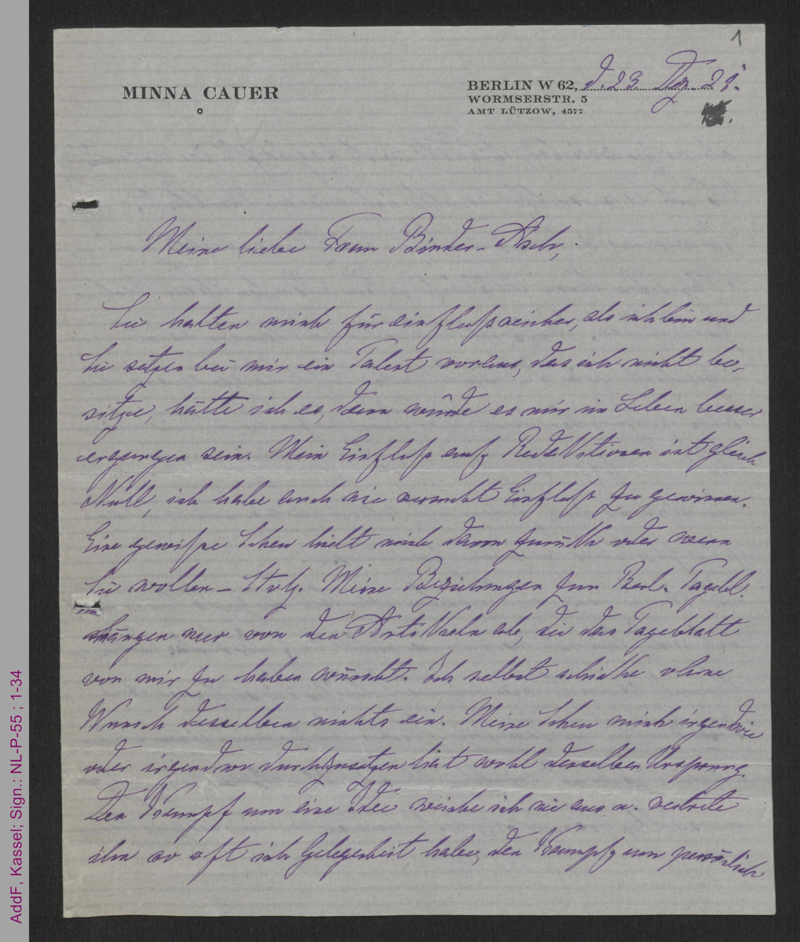 1
MINNA CAUER
BERLIN W 62, d. 23. Dez. 21.
WORMSERSTR. 5
AMT LÜTZOW, 4577
Meine liebe Frau Binder-Asch,
Sie halten mich für einflußreicher, als ich bin und
Sie setzen bei mir ein Talent voraus, das ich nicht be-
sitze, hätte ich es, dann würde es mir im Leben besser
ergangen sein. Mein Einfluß auf Redaktionen ist gleich
Null, ich habe auch nie versucht Einfluß zu gewinnen.
Eine gewisse Scheu hielt mich davon zurück oder wenn
Sie wollen – Stolz. Meine Beziehungen zum Berl. Tagebl.
hängen nur von den Artikeln ab, die das Tageblatt
von mir zu haben wünscht. Ich selbst schicke ohne
Wunsch desselben nichts ein. Meine Scheu mich irgendwie
oder irgendwo durchzusetzen hat wohl denselben Ursprung.
Den Kampf um eine Idee weiche ich nie aus u. vertrete
ihn so oft ich Gelegenheit habe, den Kampf um persönlich
AddF, Kassel; Sign.: NL-P-55 ; 1-34